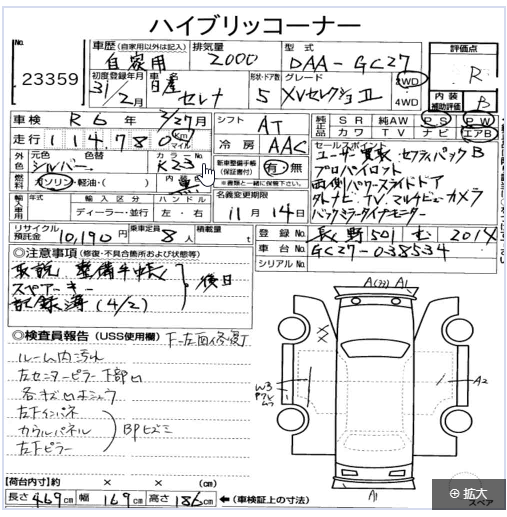 ハイブリッコーナー
No.
23359
車歴 (自家用以外は記入) 自家用
排気量 2000
型式 DAA-GC27
評価点 R
初度登録年月 31/2月
車名 日産 セレナ
形状・ドア数 5
グレード XVセレクションⅡ
2WD
4WD
内装補助評価 B
車検 R6年 2/27月
シフト AT
純正品 SR 純AW PS PW
カワ TV ナビ エアB
走行 114,780 km マイル
冷房 AAC
外色 元色 シルバー 色替
カラーNo. K23
燃料 ガソリン・軽油・( )
内装色 黒
新車整備手帳(保証書付) 有・無
※書類と一緒に保管して下さい。
セールスポイント
ユーザー買取 セフティパックB
プロパイロット
両側パワースライドドア
外ナビ・TV マルチビューカメラ
バックミラーダイナモニター
輸入車用 年式 輸入区分 ハンドル
ディーラー・並行 左・右
名義変更期限
11月14日
リサイクル預託金 10,190円
乗車定員 8人
積載量 t
登録No. 長野501 む 2014
車台No. GC27-038534
シリアルNo.
◎注意事項(修復・不具合箇所および状態等)
取説 整備手帳
スペアキー
記録簿(4/2)
後日
◎検査員報告 (USS使用欄)
ルーム内汚れ
左センターピラー下部凹
各キズ凹
左下インパネ
カウルパネル
左下ピラー
A1
W3
A2
A1
スペア
【荷台内寸】約 × × (cm)
長さ 469cm 幅 169cm 高さ 186cm ←(車検証上の寸法)
拡大